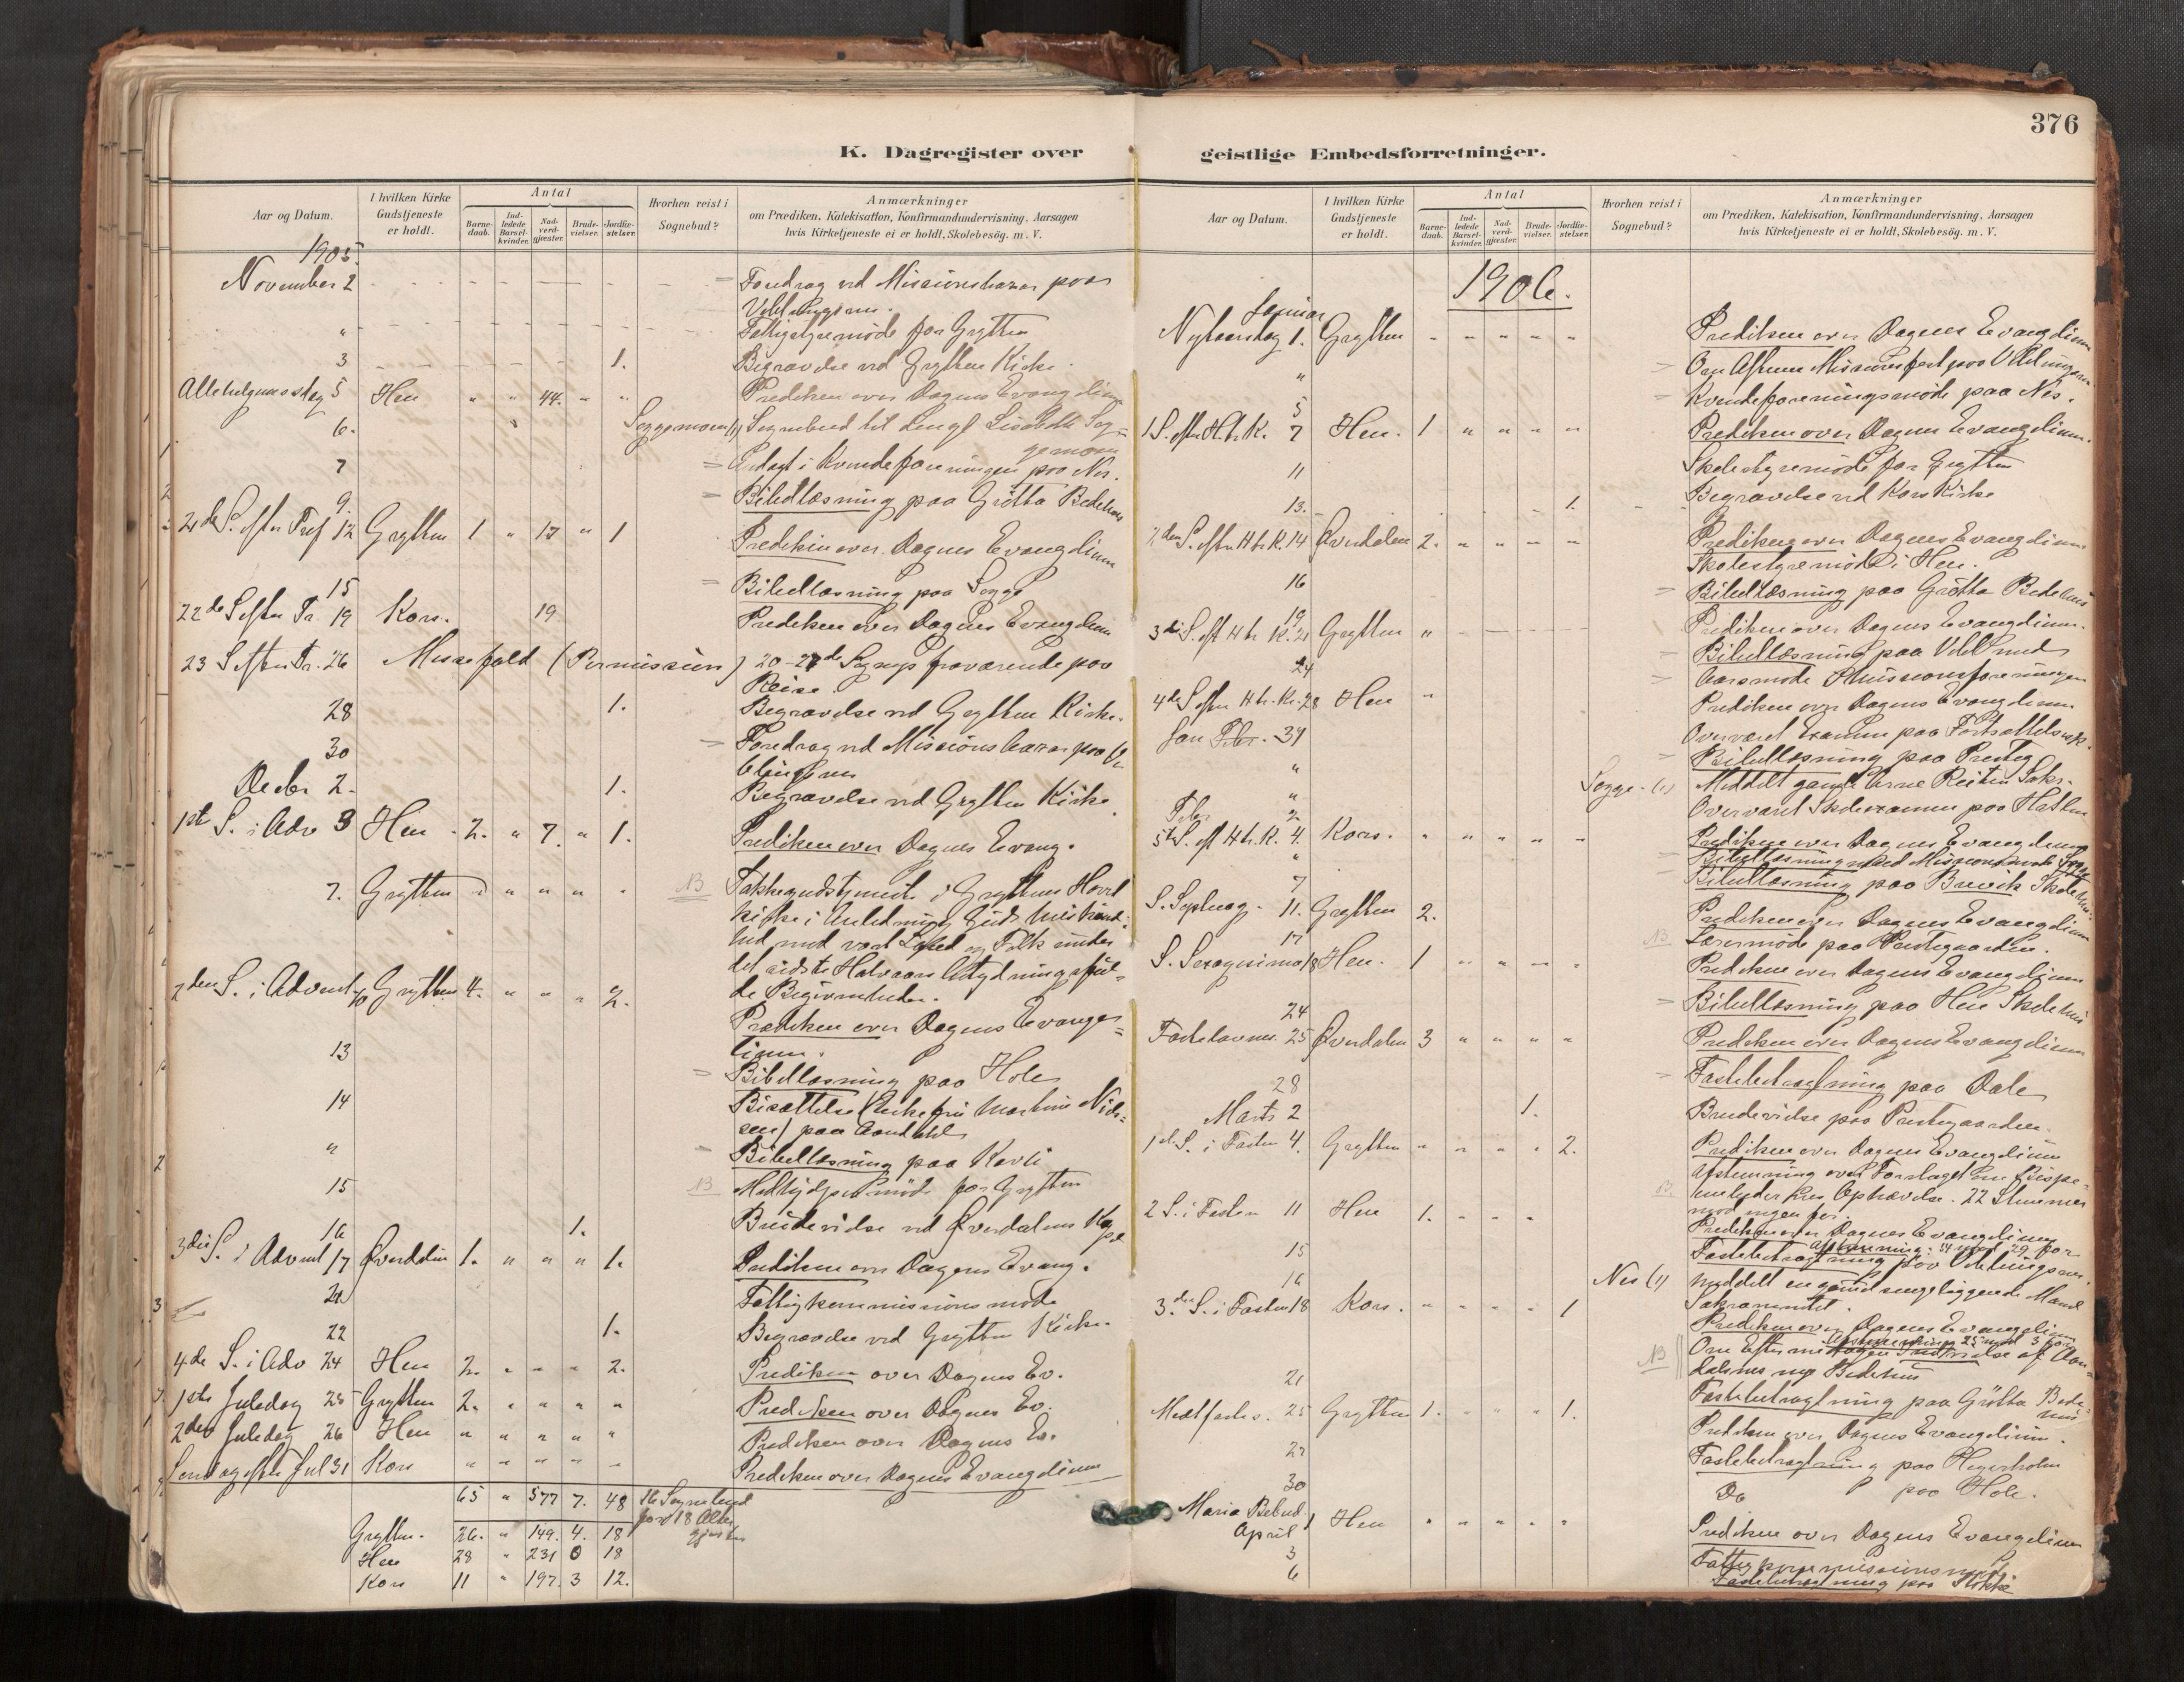 376
K. Dagregister over geistlige Embedsforretninger.
Aar og Datum. I hvilken Kirke Gudstjeneste er holdt. Antal Barnedaab. Indledede Barselkvinder. Nadverdgjæster. Brudevielser. Jordfæstelser. Hvorhen reist i Sognebud? Anmærkninger om Prædiken, Katekisation, Konfirmandundervisning, Aarsagen hvis Kirketjeneste ei er holdt, Skolebesög. m. V.
1905.
November 2 Foredrag ved Missionsbasar paa
" Fattigstyremöde for Grytten
3 1. Begravelse ved Grytten Kirke.
Allehelgensdag 5 Hen " " 44. " " Prediken over Dagens Evangelium
6. Soggemoen (1) Sognebud til
7 i Kvindeforeningen paa Nes.
9. Bibellæsning paa Grötta Bedehus
21de S. efter Tref 12 Grytten 1 " 17 " 1 Prediken over Dagens Evangelium
15 Bibellæsning paa Sogge
22de S efter Tr. 19 Kors. 19 Prediken over Dagens Evangelium
23 S efter Tr. 26 Messefald (Permission) 20-27de Sognepr fraværende paa
Reise.
28 1. Begravelse ved Grytten Kirke.
30 Foredrag ved Missionsbasar paa
Decbr 2. 1. Begravelse ved Grytten Kirke
1ste S. i Adv 3 Hen 2. " 7. " 1. Prediken over Dagens Evang.
7. Grytten " " " " NB Takkegudstjeneste i Gryttens Hoved
kirke i Anledning Guds
hed mod vort Land og Folk under
det sidste Halvaars betydningsful-
de Begivenheder.
2den S. i Advent 10 Grytten 4. " " " 2. Prædiken over Dagens Evange=
lium.
13 Bibellæsning paa Hole
14
"
Bibellæsning paa Kavli
15 NB for Grytten
16 1. Brudevielse ved Øverdalens
3die S. i Advent 17 Øverdalen 1. " " " 1. Prediken over Dagens Evang.
21 Fattigkommissionsmöde
22 1. Begravelse ved Grytten Kirke.
4de S. i Adv 24 Hen 2. " " " 2. Prediken over Dagens Ev.
1ste Juledag 25 Grytten 2. " " " " Prediken over Dagens Ev.
2den Juledag 26 Hen " " " " " Prediken over Dagens Ev.
Sondag efter Jul 31 Kors " " " " " Prediken over Dagens Evangelium
65 " 577 7. 48 16 Sognebud
for 18
Grytten. 26. " 149. 4. 18
Hen 28 " 231 0 18
Kors 11 " 197. 3 12.
1906.
Januar
Nytaarsdag 1. Grytten " " " " " Prediken over Dagens Evangelium
" Om Aftenen Missionsfest paa
5 Kvindeforeningsmöde paa Nes.
1 S. efter H. tr. K. 7 Hen. 1 " " " " Prediken over Dagens Evangelium.
11 Skolestyremöde for Grytten
13. 1. Begravelse ved Kors Kirke
2den S. efter H tr K. 14 Øverdalen 2. " " " " Prediken over Dagens Evangelium
16 Skolestyremöde i Hen.
19 Bibellæsning paa Grötta Bedehus
3die S. eft H tr K. 21 Grytten " Prediken over Dagens Evangelium.
24 Bibellæsning paa
Aarsmöde i Missionsforeningen
4de S efter H tr. K. 28 Hen " Prediken over Dagens Evangelium
Jan Febr. 31 Overværet Examen paa
" Bibellæsning paa
" Sogge (1) Meddelt gamle Arne
Febr 2 Overværet Skoleexamen paa
5te S. eft H tr. K. 4. Kors. " " " " " Prediken over Dagens Evangelium
" Bibellæsning
7 Bibellæsning paa Brevik Skolehus.
S. Septuag. 11. Grytten 2. Prediken over Dagens Evangelium
17 NB Læremöde paa Prestegaarden.
S. Sexagesima 18 Hen. 1 " " " " Prediken over Dagens Evangelium
24 Bibellæsning paa Hen Skolehus
Fastelavns. 25 Øverdalen 3 " " " " Prediken over Dagens Evangelium
28 Fastebetragtning paa Dale
Marts 2 1. Brudevielse paa Prestegaarden.
1ste S. i Fasten 4. Grytten " " " " 2. Prediken over Dagens Evangelium
Afstemning over Forslaget om
Ophævelse. 22 Stemmer
mod ingen for.
2 S. i Fasten 11 Hen 1. " " " Prediken over Dagens Evangelium
Afstemning: 51 mod 29 for
15 Fastebetragtning paa
16 Nes (1) Meddelt en gammel sengeliggende Mand
Sakramentet.
3die S. i Fasten 18 Kors. " " " " 1 Prediken over Dagens Evangelium
Afstemning 25 mod 3 for
NB Om Eftermiddagen Indvielse af
dalens nye Bedehus
21 Fastebetragtning paa Grötta Bede-
hus
Midfaste s. 25 Grytten 1. " " " 1. Prediken over Dagens Evangelium.
27 Fastebetragtning paa Hegerholm
30 Do paa Hole.
Maria Bebud.
April 1 Hen " " " " " Prediken over Dagens Evangelium
3 Fattigkommissionsmöde
6 Fastebetragtning paa